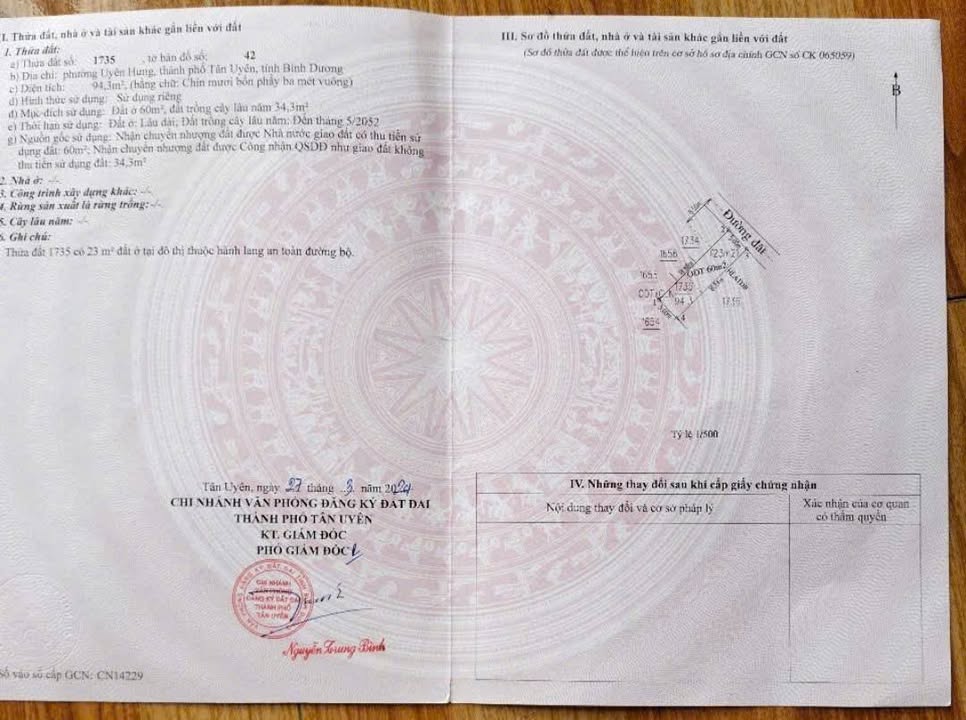 I. Thửa đất, nhà ở và tài sản khác gắn liền với đất
1. Thửa đất:
a) Thửa đất số: 1735 , tờ bản đồ số: 42
b) Địa chỉ: phường Uyên Hưng, thành phố Tân Uyên, tỉnh Bình Dương
c) Diện tích: 94,3m², (bằng chữ: Chín mươi bốn phẩy ba mét vuông)
d) Hình thức sử dụng: Sử dụng riêng
đ) Mục đích sử dụng: Đất ở 60m², đất trồng cây lâu năm 34,3m²
e) Thời hạn sử dụng: Đất ở: Lâu dài; Đất trồng cây lâu năm: Đến tháng 5/2052
g) Nguồn gốc sử dụng: Nhận chuyển nhượng đất được Nhà nước giao đất có thu tiền sử
dụng đất: 60m²; Nhận chuyển nhượng đất được Công nhận QSDĐ như giao đất không
thu tiền sử dụng đất: 34,3m²
2. Nhà ở: -/-
3. Công trình xây dựng khác: -/-
4. Rừng sản xuất là rừng trồng: -/-
5. Cây lâu năm: -/-
6. Ghi chú:
Thửa đất 1735 có 23 m² đất ở tại đô thị thuộc hành lang an toàn đường bộ.
Tân Uyên, ngày 27 tháng 3 năm 2024
CHI NHÁNH VĂN PHÒNG ĐĂNG KÝ ĐẤT ĐAI
THÀNH PHỐ TÂN UYÊN
KT. GIÁM ĐỐC
PHÓ GIÁM ĐỐC
CHI NHÁNH
VĂN PHÒNG
ĐĂNG KÝ ĐẤT ĐAI
THÀNH PHỐ
TÂN UYÊN
Nguyễn Trung Bình
Số vào sổ cấp GCN: CN14229
III. Sơ đồ thửa đất, nhà ở và tài sản khác gắn liền với đất
(Sơ đồ thửa đất được thể hiện trên cơ sở hồ sơ địa chính GCN số CK 065059)
B
Đường đất
1734
1656
(23m2)
HLATĐB
ODT 60m2
1655
1735
94.3
1736
4
1654
Tỷ lệ 1/500
IV. Những thay đổi sau khi cấp giấy chứng nhận
Nội dung thay đổi và cơ sở pháp lý
Xác nhận của cơ quan
có thẩm quyền